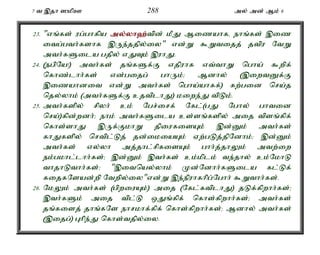 7 வது ஜுஸ்உ 288 அல் அன் ஆம் 6
23. "எங்கள் ரப்பாகிய அல்லாஹ்வின் மீது ஆணையாக, நாங்கள் இணை
வைப்பவர்களாக இருந்ததில்லை" என்று கூறுவதைத் தவிர வேறு
அவர்களுடைய பதில் எதுவும் இராது.
24. (நபியே!) அவர்கள் தங்களுக்கு எதிராக எவ்வாறு பொய் கூறிக்
கொண்டார்கள் என்பதைப் பாரும்; ஆனால் (இறைவனுக்கு
இணையானவை என்று அவர்கள் பொய்யாகக்) கற்பனை செய்த
தெல்லாம் (அவர்களுக்கு உதவிடாது) மறைந்து விடும்.
25. அவர்களில் சிலர் உம் பேச்சைக் கேட்(பது போல் பாவனை
செய்)கின்றனர்; நாம் அவர்களுடைய உள்ளங்களில் அதை விளங்கிக்
கொள்ளாது இருக்குமாறு திரைகளையும் இன்னும் அவர்கள்
காதுகளில் செவிட்டுத் தன்மையையும் ஏற்படுத்தினோம்; இன்னும்
அவர்கள் எல்லா அத்தாட்சிகளையும் பார்த்தாலும் அவற்றை
நம்பமாட்டார்கள்; இன்னும் இவர்கள் உம்மிடம் வந்தால் உம்மோடு
வாதாடுவார்கள்; "இவையெல்லாம் முன்னோர்களுடைய கட்டுக்
கதைகளேயன்றி வேறில்லை" என்று இந்நிராகரிப்போர் கூறுவார்கள்.
26. மேலும் அவர்கள் (பிறரையும்) அதை (கேட்கவிடாது) தடுக்கிறார்கள்;
இவர்களும் அதை விட்டு ஒதுங்கிக் கொள்கிறார்கள்; அவர்கள்
தங்களைத் தாங்களே நாசமாக்கிக் கொள்கிறார்கள்; ஆனால் அவர்கள்
(இதைப்) புரிந்து கொள்வதில்லை.